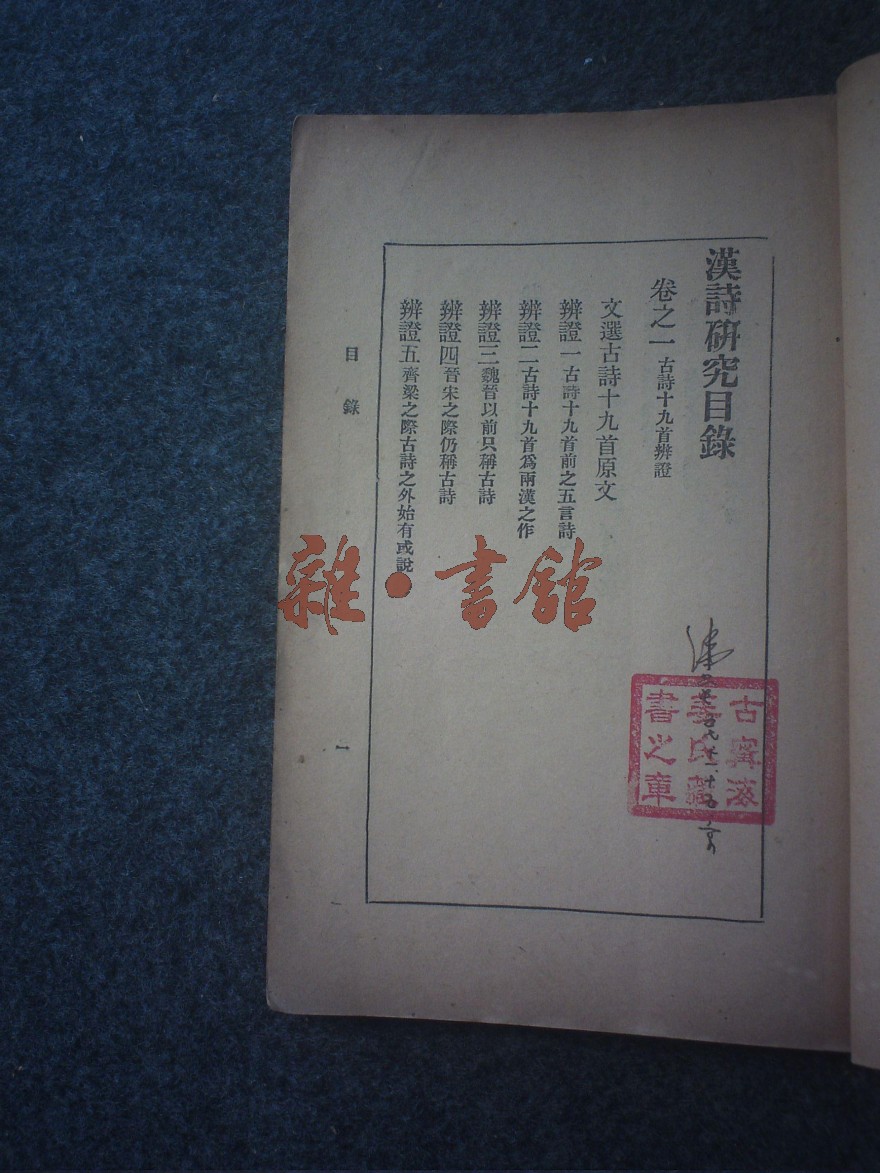 漢詩硏究目錄
卷之一 古詩十九首辨證
文選古詩十九首原文
辨證一 古詩十九首前之五言詩
辨證二 古詩十九首爲兩漢之作
辨證三 魏晉以前只稱古詩
辨證四 晉宋之際仍稱古詩
辨證五 齊梁之際古詩之外始有或說
目錄
一
古寗海
姜氏藏
書之章
雜·書館